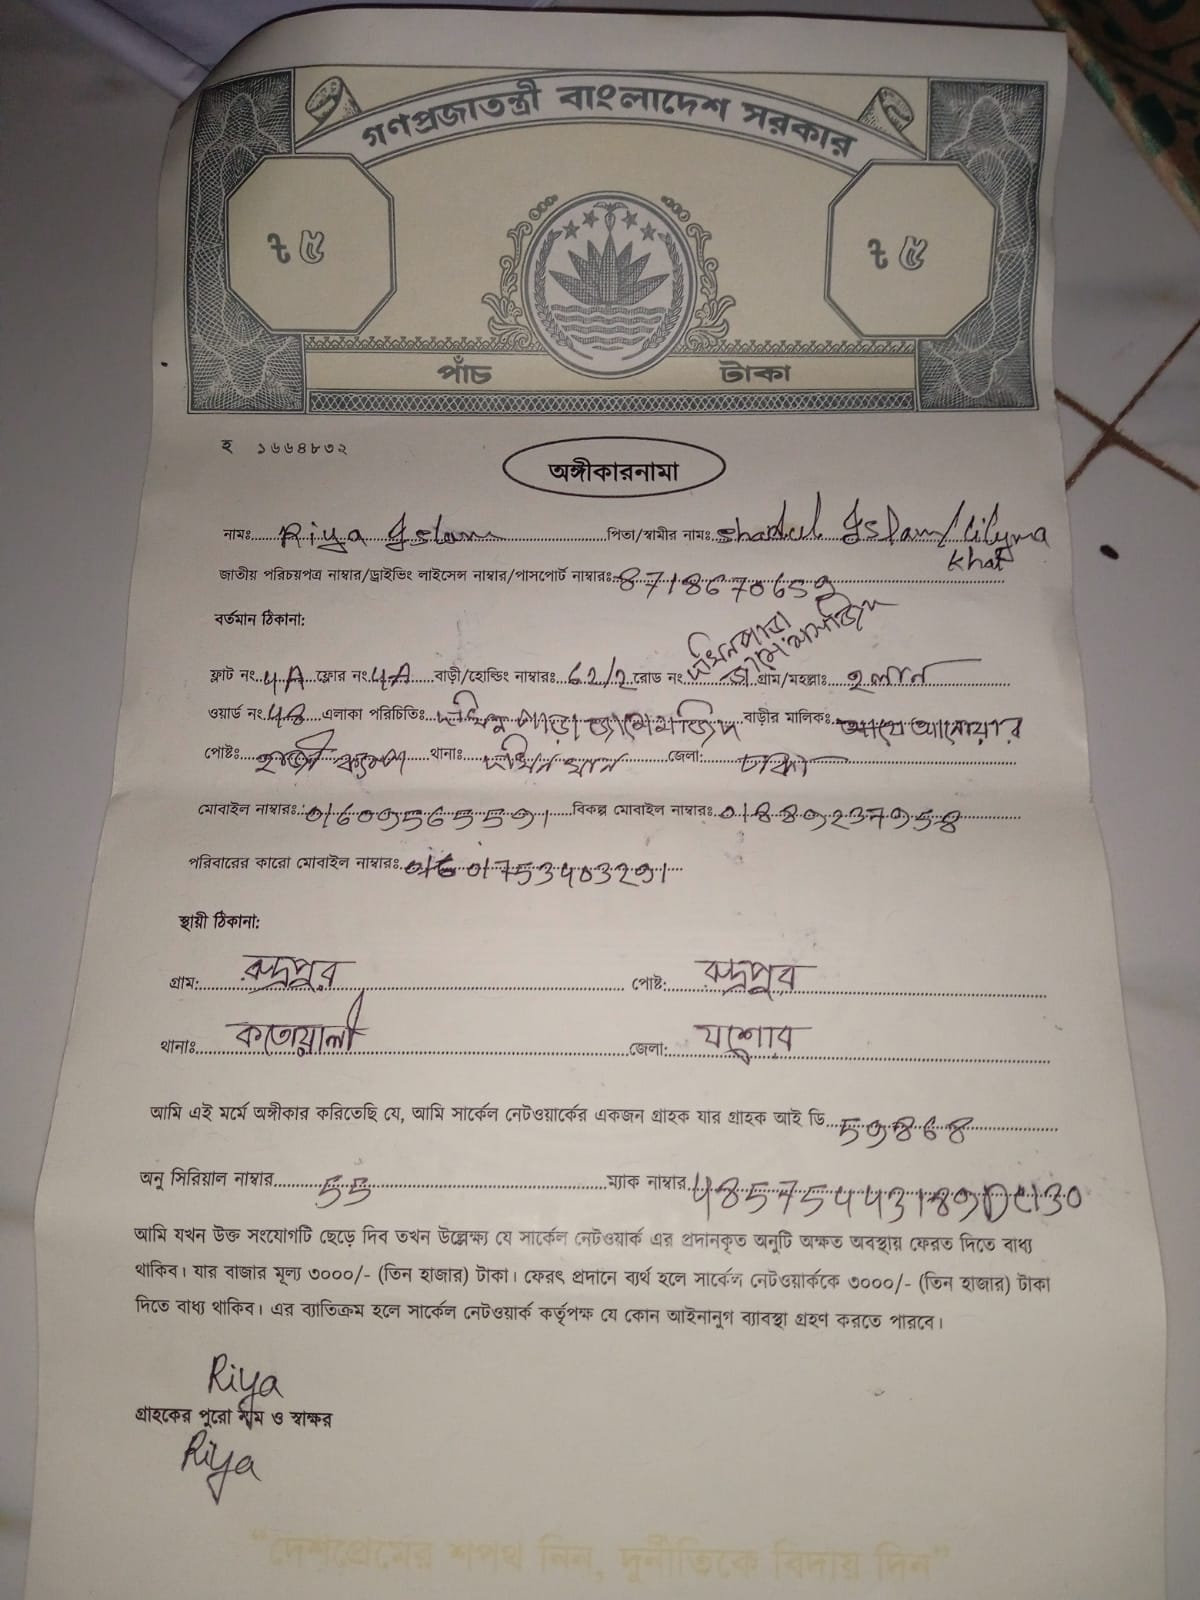 গণপ্রজাতন্ত্রী বাংলাদেশ সরকার
৳ ৫ ৳ ৫
পাঁচ টাকা
হ ১৬৬৪৮৩২
অঙ্গীকারনামা
নামঃ Riya Islam পিতা/স্বামীর নামঃ Shadul Islam/
জাতীয় পরিচয়পত্র নাম্বার/ড্রাইভিং লাইসেন্স নাম্বার/পাসপোর্ট নাম্বারঃ
বর্তমান ঠিকানা:
ফ্লাট নং 4A ফ্লোর নং 4A বাড়ী/হোল্ডিং নাম্বারঃ 62/2 রোড নং গ্রাম/মহল্লাঃ হলান
ওয়ার্ড নং 48 এলাকা পরিচিতিঃ বাড়ীর মালিকঃ
পোষ্টঃ থানাঃ দক্ষিনখান জেলা: ঢাকা
মোবাইল নাম্বারঃ 01609565591 বিকল্প মোবাইল নাম্বারঃ 01889237958
পরিবারের কারো মোবাইল নাম্বারঃ 01753403291
স্থায়ী ঠিকানা:
গ্রাম: রুদ্রপুর পোষ্ট: রুদ্রপুর
থানাঃ কতোয়ালী জেলা: যশোর
আমি এই মর্মে অঙ্গীকার করিতেছি যে, আমি সার্কেল নেটওয়ার্কের একজন গ্রাহক যার গ্রাহক আই ডি 59868
অনু সিরিয়াল নাম্বার 55 ম্যাক নাম্বার
আমি যখন উক্ত সংযোগটি ছেড়ে দিব তখন উল্লেক্ষ্য যে সার্কেল নেটওয়ার্ক এর প্রদানকৃত অনুটি অক্ষত অবস্থায় ফেরত দিতে বাধ্য
থাকিব। যার বাজার মূল্য ৩০০০/- (তিন হাজার) টাকা। ফেরৎ প্রদানে ব্যর্থ হলে সার্কেল নেটওয়ার্ককে ৩০০০/- (তিন হাজার) টাকা
দিতে বাধ্য থাকিব। এর ব্যাতিক্রম হলে সার্কেল নেটওয়ার্ক কর্তৃপক্ষ যে কোন আইনানুগ ব্যাবস্থা গ্রহণ করতে পারবে।
Riya
গ্রাহকের পুরো নাম ও স্বাক্ষর
Riya
“দেশপ্রেমের শপথ নিন, দুর্নীতিকে বিদায় দিন”